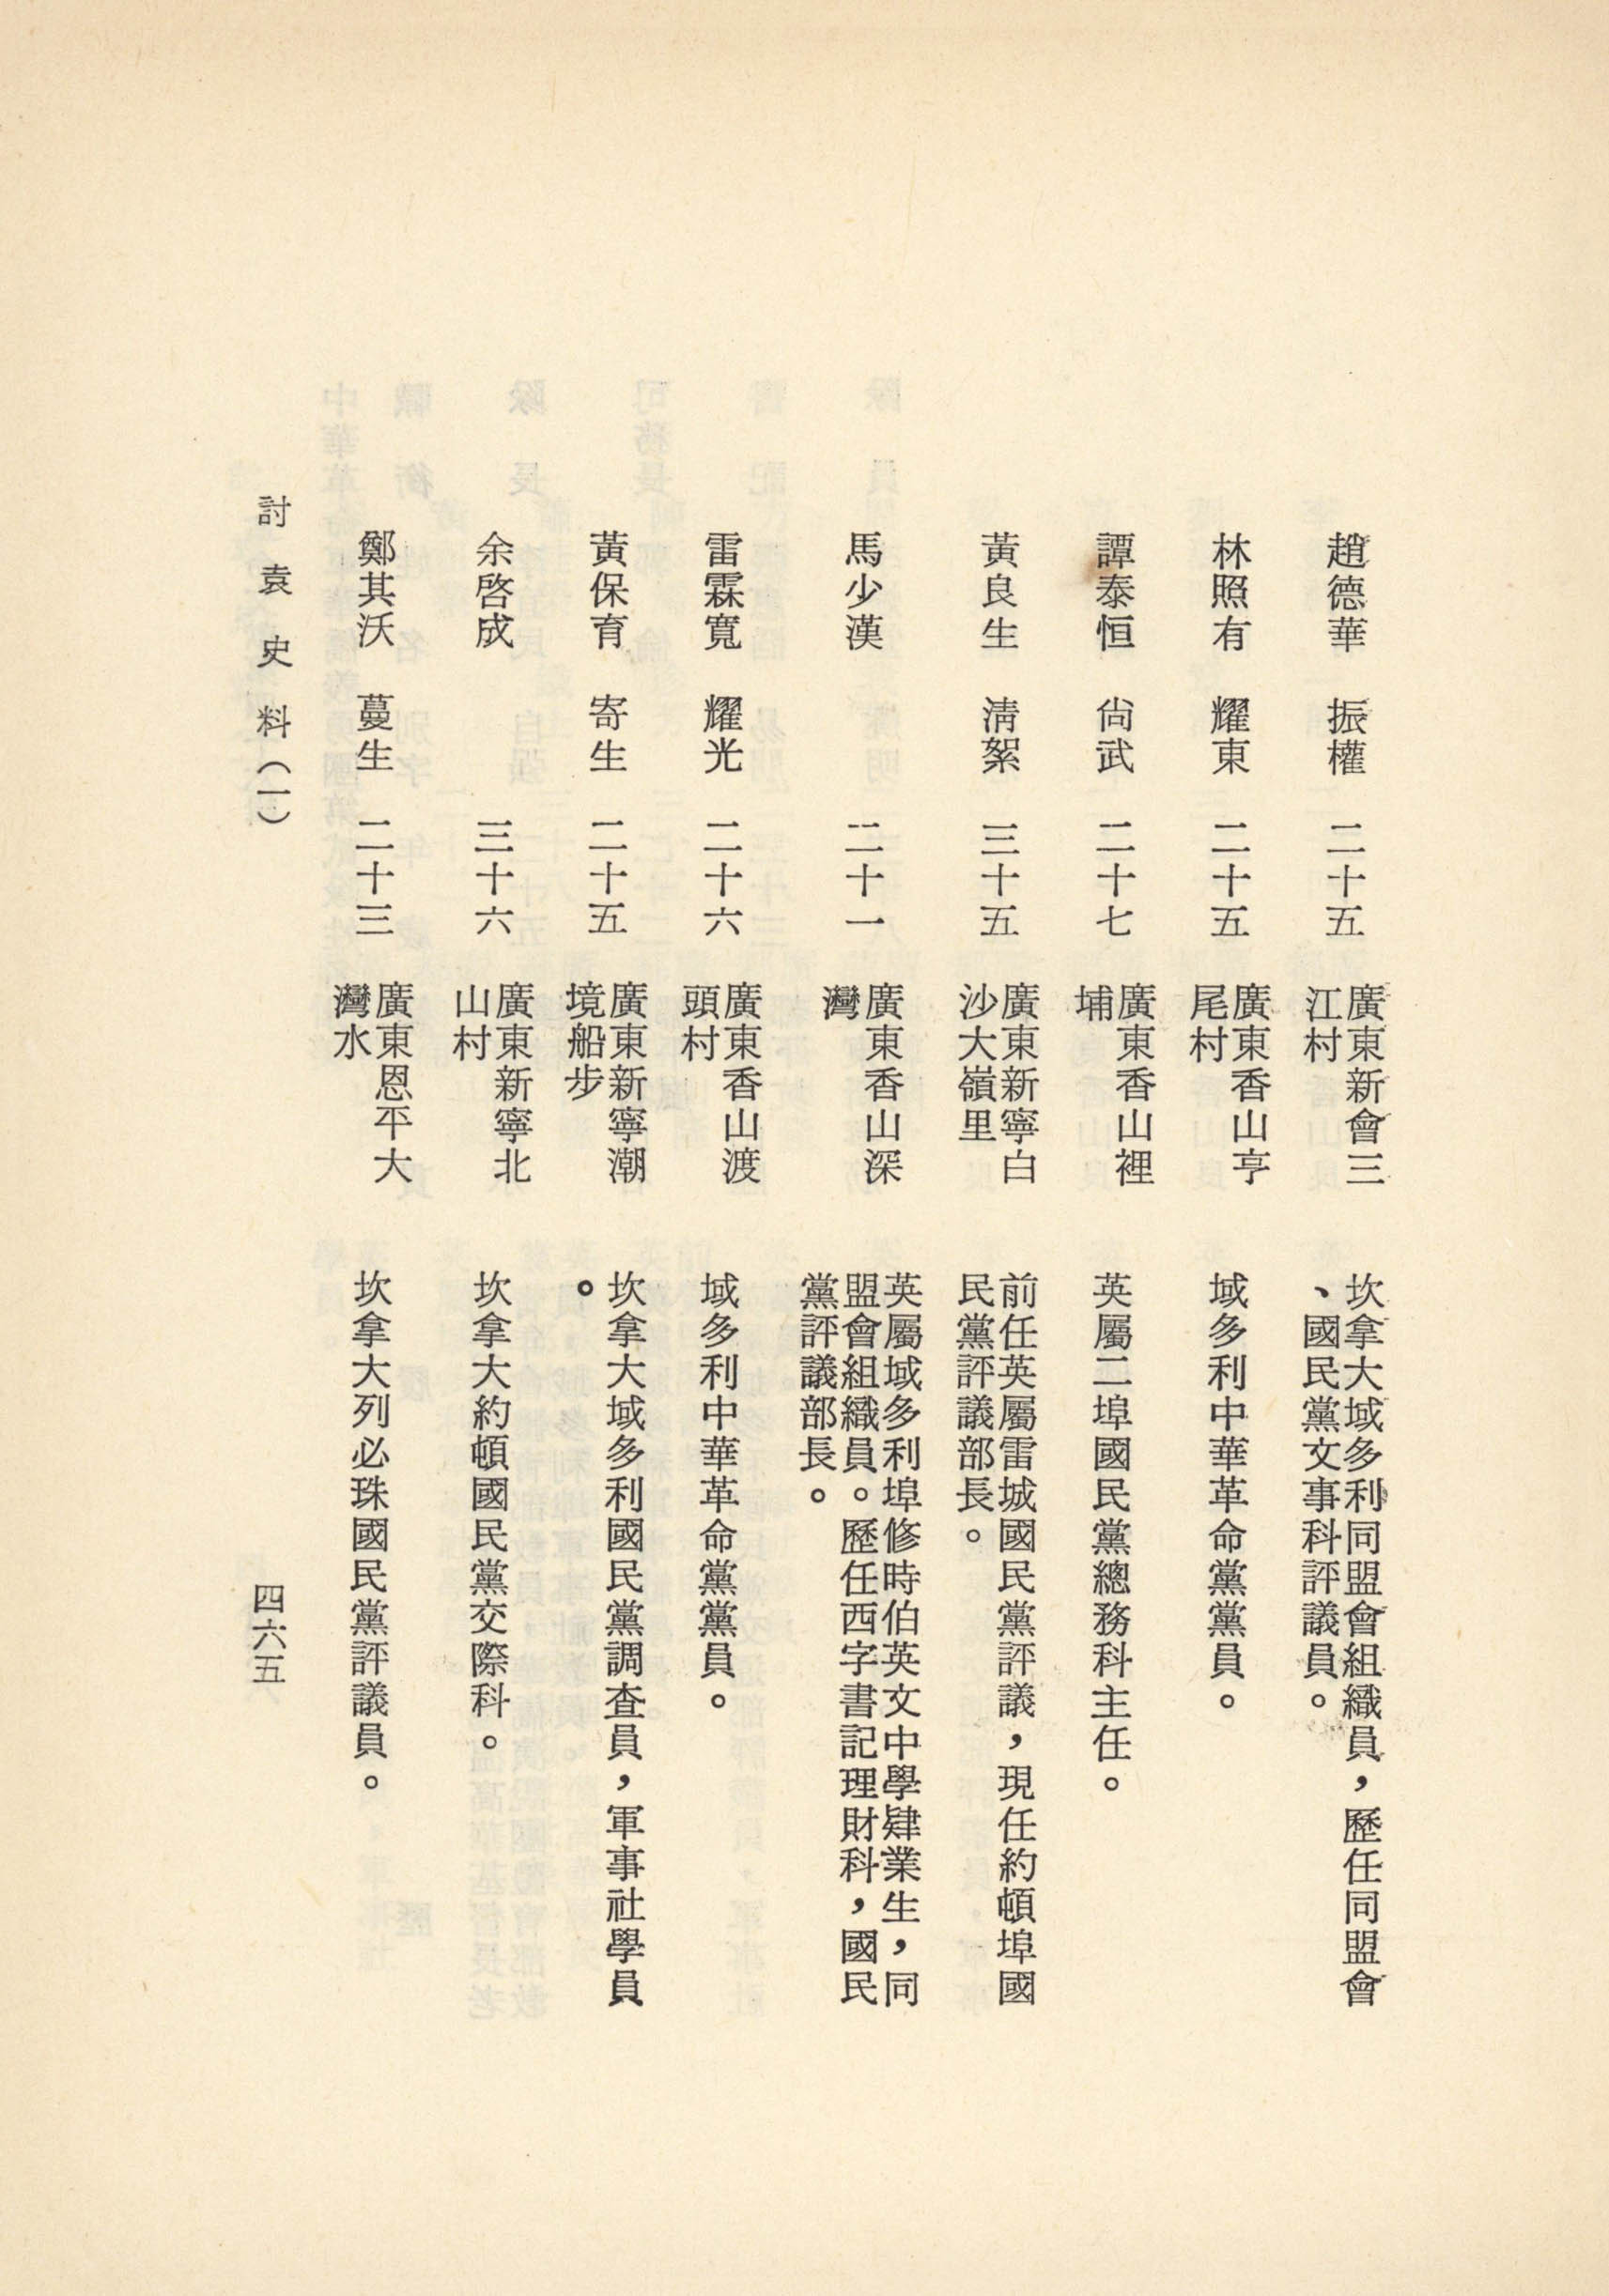 趙德華　振權　二十五　廣東新會三
江村
坎拿大域多利同盟會組織員，歷任同盟會
、國民黨文事科評議員。
林照有　耀東　二十五　廣東香山亨
尾村
域多利中華革命黨黨員。
譚泰恒　尙武　二十七　廣東香山裡
埔
英屬二埠國民黨總務科主任。
黃良生　淸絮　三十五　廣東新寧白
沙大嶺里
前任英屬雷城國民黨評議，現任約頓埠國
民黨評議部長。
馬少漢　二十一　廣東香山深
灣
英屬域多利埠修時伯英文中學肄業生，同
盟會組織員。歷任西字書記理財科，國民
黨評議部長。
雷霖寬　耀光　二十六　廣東香山渡
頭村
域多利中華革命黨黨員。
黃保育　寄生　二十五　廣東新寧潮
境船步
坎拿大域多利國民黨調查員，軍事社學員
。
余啓成　三十六　廣東新寧北
山村
坎拿大約頓國民黨交際科。
鄭其沃　蔓生　二十三　廣東恩平大
灣水
坎拿大列必珠國民黨評議員。
討袁史料（一）
四六五